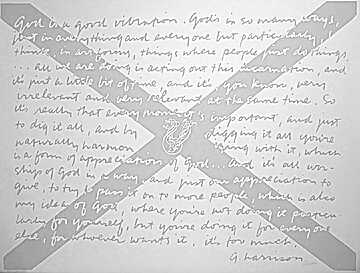 God is a good vibration. God's in so many ways,
but in everything and everyone but particularly, I
think, in art forms, things where people just do things.
... all we are doing is acting out this incarnation, and
it's just a little bit of time, and it's, you know, very
irrelevant and very relevant at the same time. So
it's really that every moment's important, and just
to dig it all, and by digging it all you're
naturally harmon izing with it, which
is a form of appreciation of God... and it's all wor-
ship of God in a way - and just our appreciation to
give, to try to pass it on to more people, which is also
my idea of God, where you're not doing it particu-
larly for yourself, but you're doing it for everyone
else, for whoever wants it, it's too much.
G. harrison